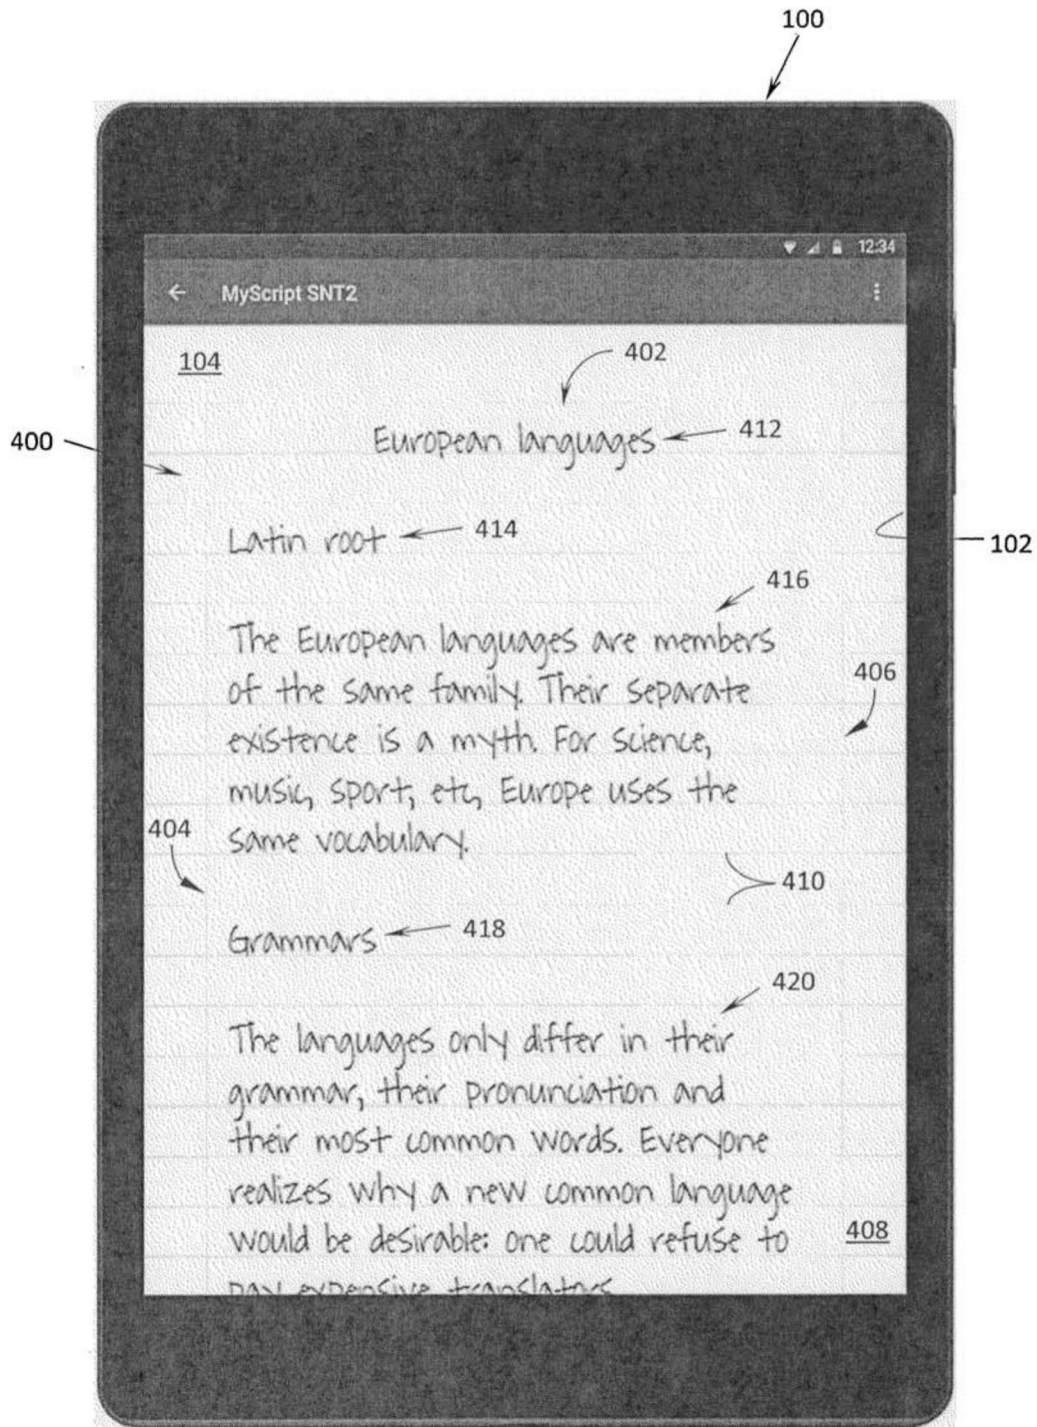 100
12:34
MyScript SNT2
104
402
400
European languages
412
Latin root
414
102
416
The European languages are members
406
of the same family. Their separate
existence is a myth. For science,
music, sport, etc, Europe uses the
404
same vocabulary.
410
Grammars
418
420
The languages only differ in their
grammar, their pronunciation and
their most common words. Everyone
realizes why a new common language
would be desirable: one could refuse to
408
pay expensive translators